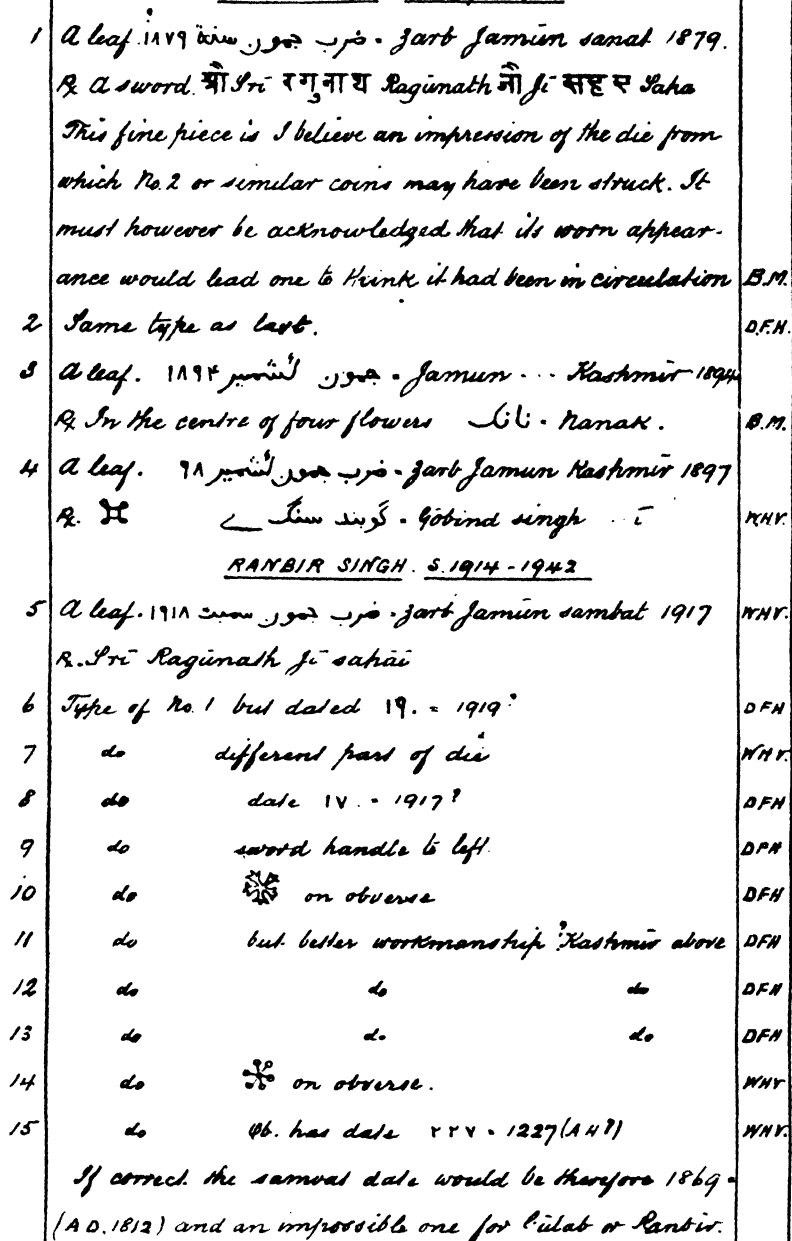 1 A leaf. ضرب جمون سنة ١٨٧٩ - Zarb Jamūn sanat 1879.
℞ A sword. श्री Srī रगुनाथ Ragūnath जी Jī सहए Saha
This fine piece is I believe an impression of the die from
which No. 2 or similar coins may have been struck. It
must however be acknowledged that its worn appear-
ance would lead one to think it had been in circulation B.M.
2 Same type as last. D.F.H.
3 A leaf. جمون كشمير ١٨٩٤ - Jamun ... Kashmir 1894
℞ In the centre of four flowers نانك - Nanak. B.M.
4 A leaf. ضرب جمون كشمير ٩٨ - Zarb Jamun Kashmir 1897
℞. گوبند سنگ ے - Gōbind singh .. ī WHV.
RANBIR SINGH. S. 1914-1942
5 A leaf. ضرب جمون سمبت ١٩١٨ - Zarb Jamūn sambat 1917 WHV.
℞. Srī Ragūnath Jī sahāī
6 Type of No. 1 but dated ١٩. = 1919? DFH
7 do different part of die WHV.
8 do date ١٧. - 1917? DFH
9 do sword handle to left. DFH
10 do on obverse DFH
11 do but better workmanship ? Kashmir above DFH
12 do do do DFH
13 do do do DFH
14 do on obverse. WHV
15 do Ob. has date ٢٢٧ - 1227 (AH?) WHV.
If correct the samvat date would be therefore 1869 -
(A.D. 1812) and an impossible one for Gūlab or Ranbir.